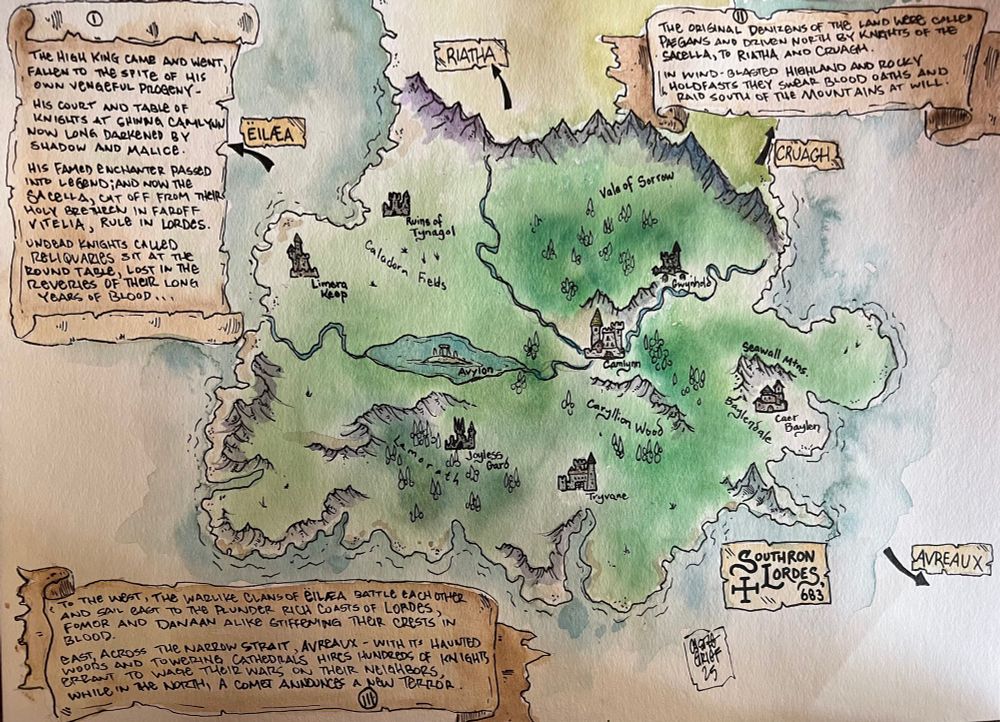 I
THE HIGH KING CAME AND WENT,
FALLEN TO THE SPITE OF HIS
OWN VENGEFUL PROGENY-
HIS COURT AND TABLE OF
KNIGHTS AT SHINING CAMLYNN
NOW LONG DARKENED BY
SHADOW AND MALICE.
HIS FAMED ENCHANTER PASSED
INTO LEGEND; AND NOW THE
SACELLA, CUT OFF FROM THEIR
HOLY BRETHREN IN FAROFF
VITELIA, RULE IN LORDES.
UNDEAD KNIGHTS CALLED
RELIQUARIES SIT AT THE
ROUND TABLE, LOST IN THE
REVERIES OF THEIR LONG
YEARS OF BLOOD...
II
THE ORIGINAL DENIZENS OF THE LAND WERE CALLED
PAEGANS AND DRIVEN NORTH BY KNIGHTS OF THE
SACELLA, TO RIATHA AND CRUAGH.
IN WIND-BLASTED HIGHLAND AND ROCKY
HOLDFASTS THEY SWEAR BLOOD OATHS AND
RAID SOUTH OF THE MOUNTAINS AT WILL.
RIATHA
ËILÆA
CRUAGH
Vale of Sorrow
Ruins of
Tynagol
Caladorn Fields
Limera
Keep
Gwynhold
Camlynn
Avylon
Seawall Mtns.
Caryllion Wood
Baylendale
Caer
Baylen
Joyless
Gard
Tryvane
SOUTHRON
LORDES,
683
AVREAUX
TO THE WEST, THE WARLIKE CLANS OF ËILÆA BATTLE EACH OTHER
AND SAIL EAST TO THE PLUNDER RICH COASTS OF LORDES,
FOMOR AND DANAAN ALIKE STIFFENING THEIR CRESTS IN
BLOOD.
EAST, ACROSS THE NARROW STRAIT, AVREAUX - WITH ITS HAUNTED
WOODS AND TOWERING CATHEDRALS HIRES HUNDREDS OF KNIGHTS
ERRANT TO WAGE THEIR WARS ON THEIR NEIGHBORS,
WHILE IN THE NORTH, A COMET ANNOUNCES A NEW TERROR.
III
GRIEF
25